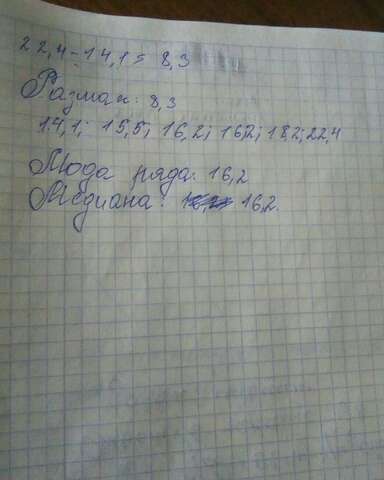 22,4-14,1= 8,3
Размах: 8,3
14,1; 15,5; 16,2; 16,2; 18,2; 22,4
Мода ряда: 16,2
Медиана: 16,2.